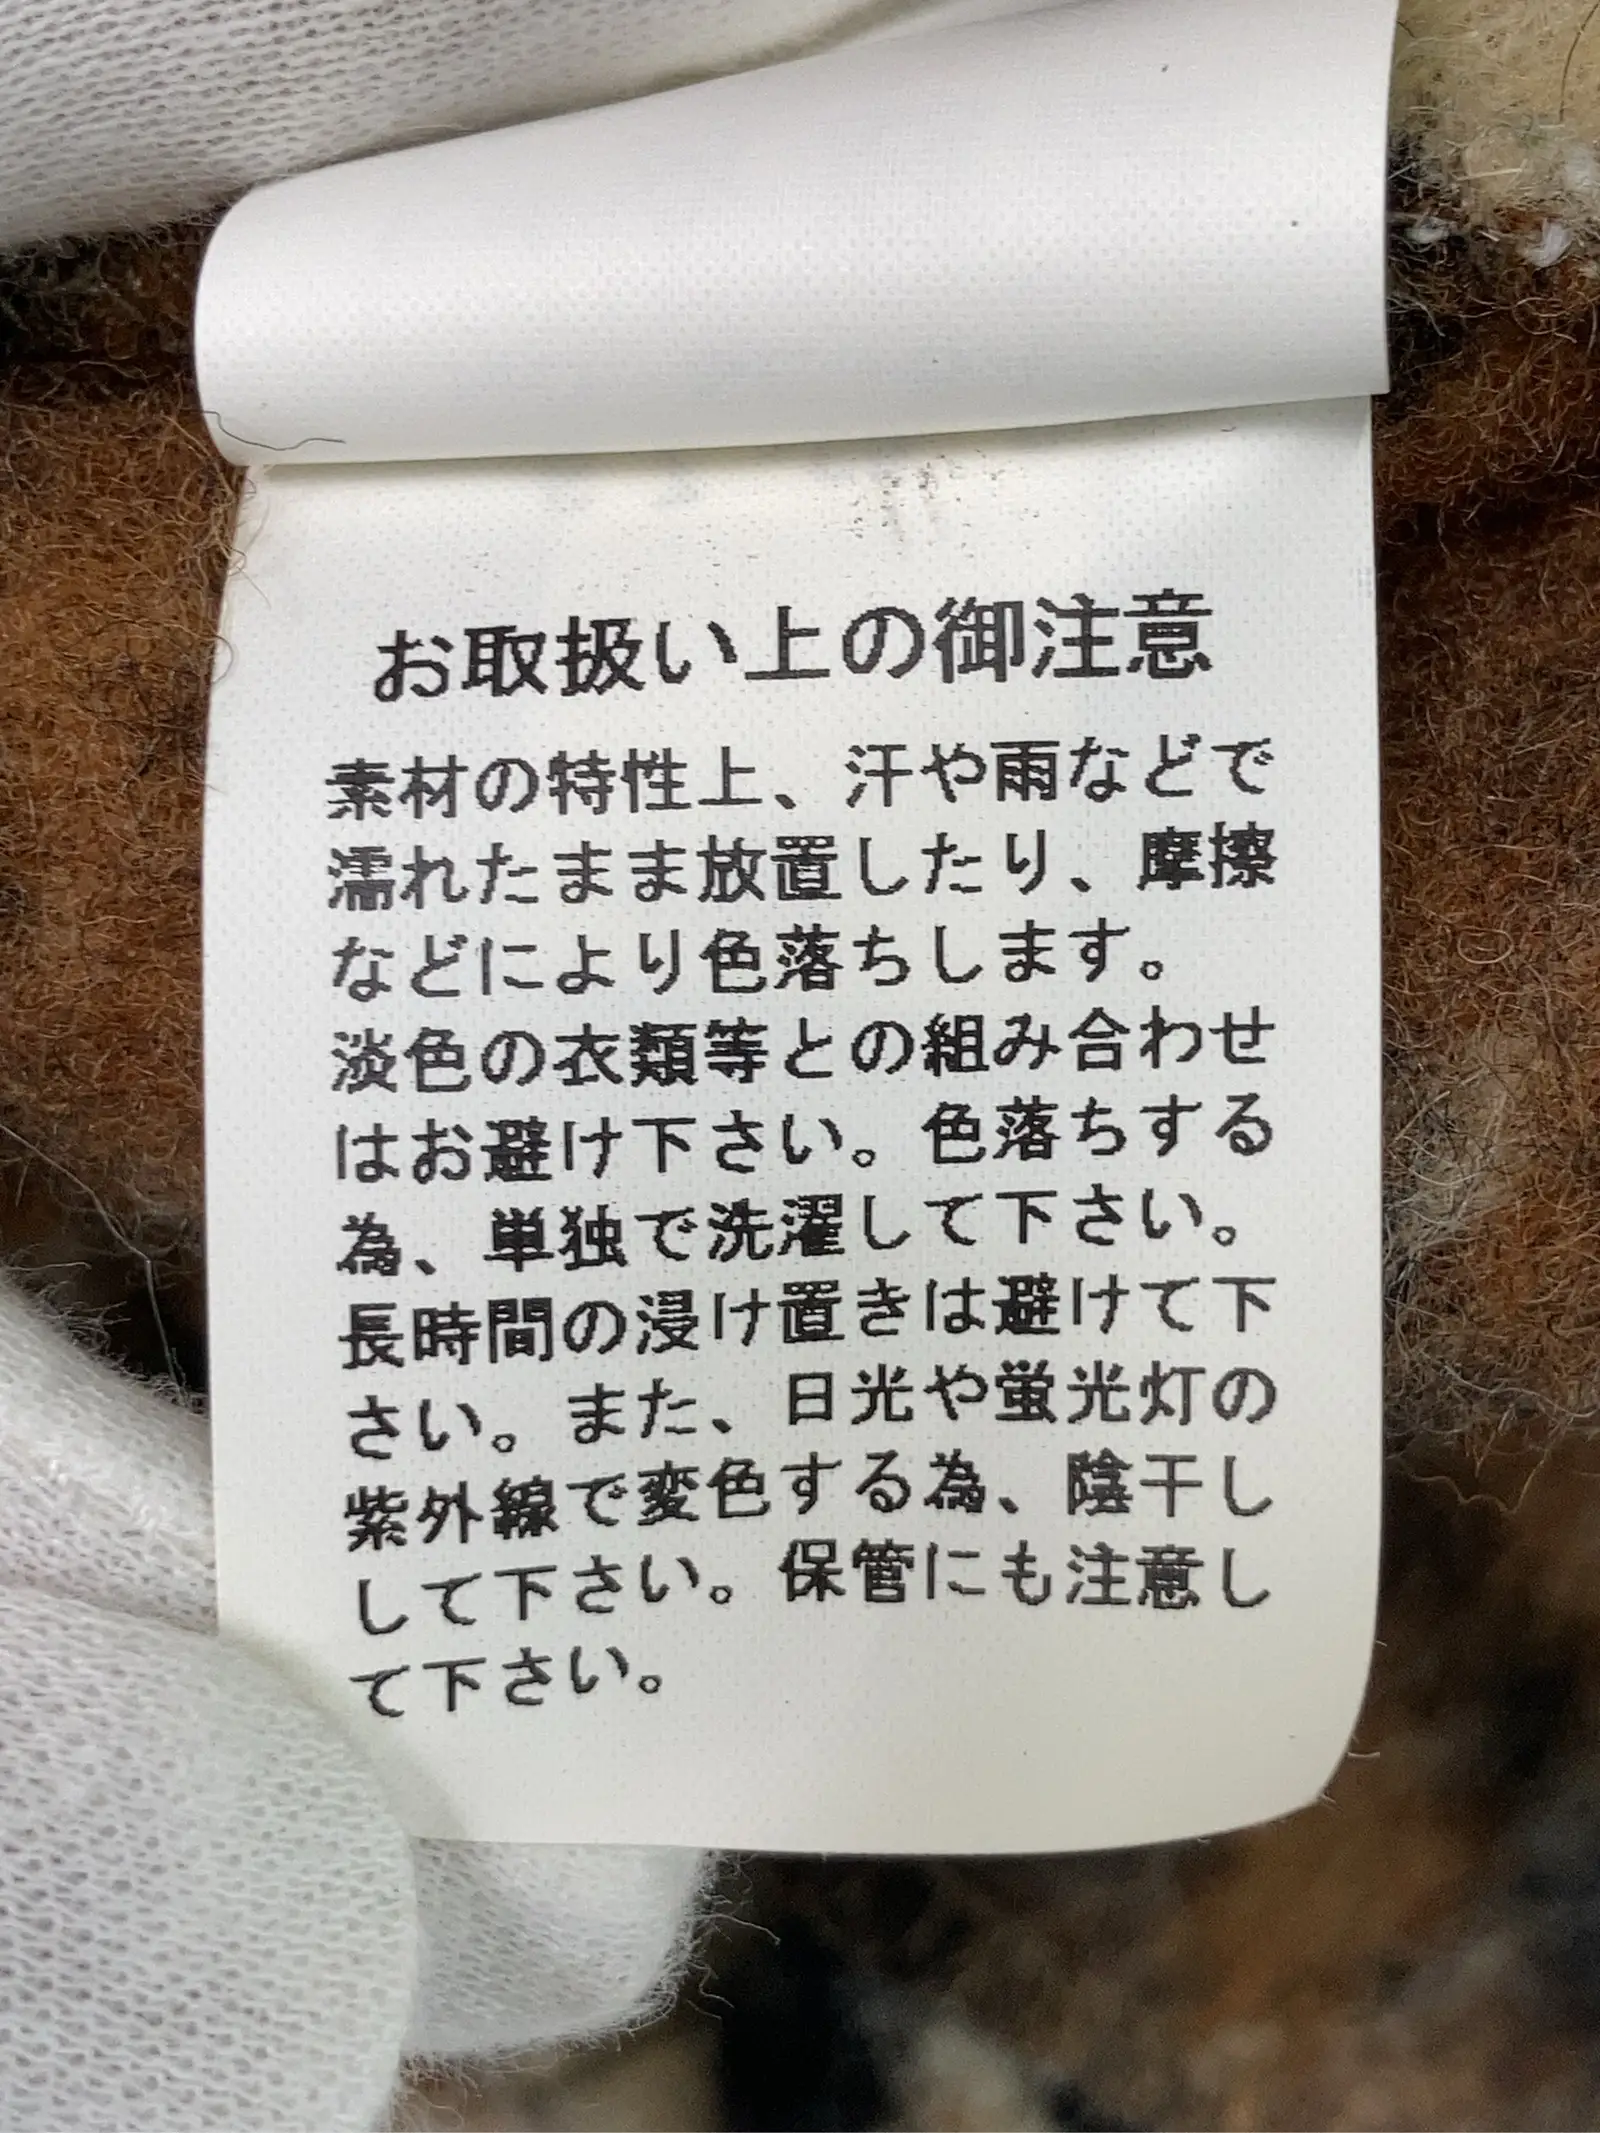 お取扱い上の御注意
素材の特性上、汗や雨などで
濡れたまま放置したり、摩擦
などにより色落ちします。
淡色の衣類等との組み合わせ
はお避け下さい。色落ちする
為、単独で洗濯して下さい。
長時間の浸け置きは避けて下
さい。また、日光や蛍光灯の
紫外線で変色する為、陰干し
して下さい。保管にも注意し
て下さい。